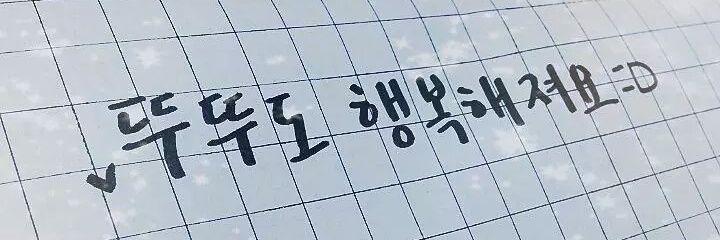 ✓뚜뚜도 행복해져요=D